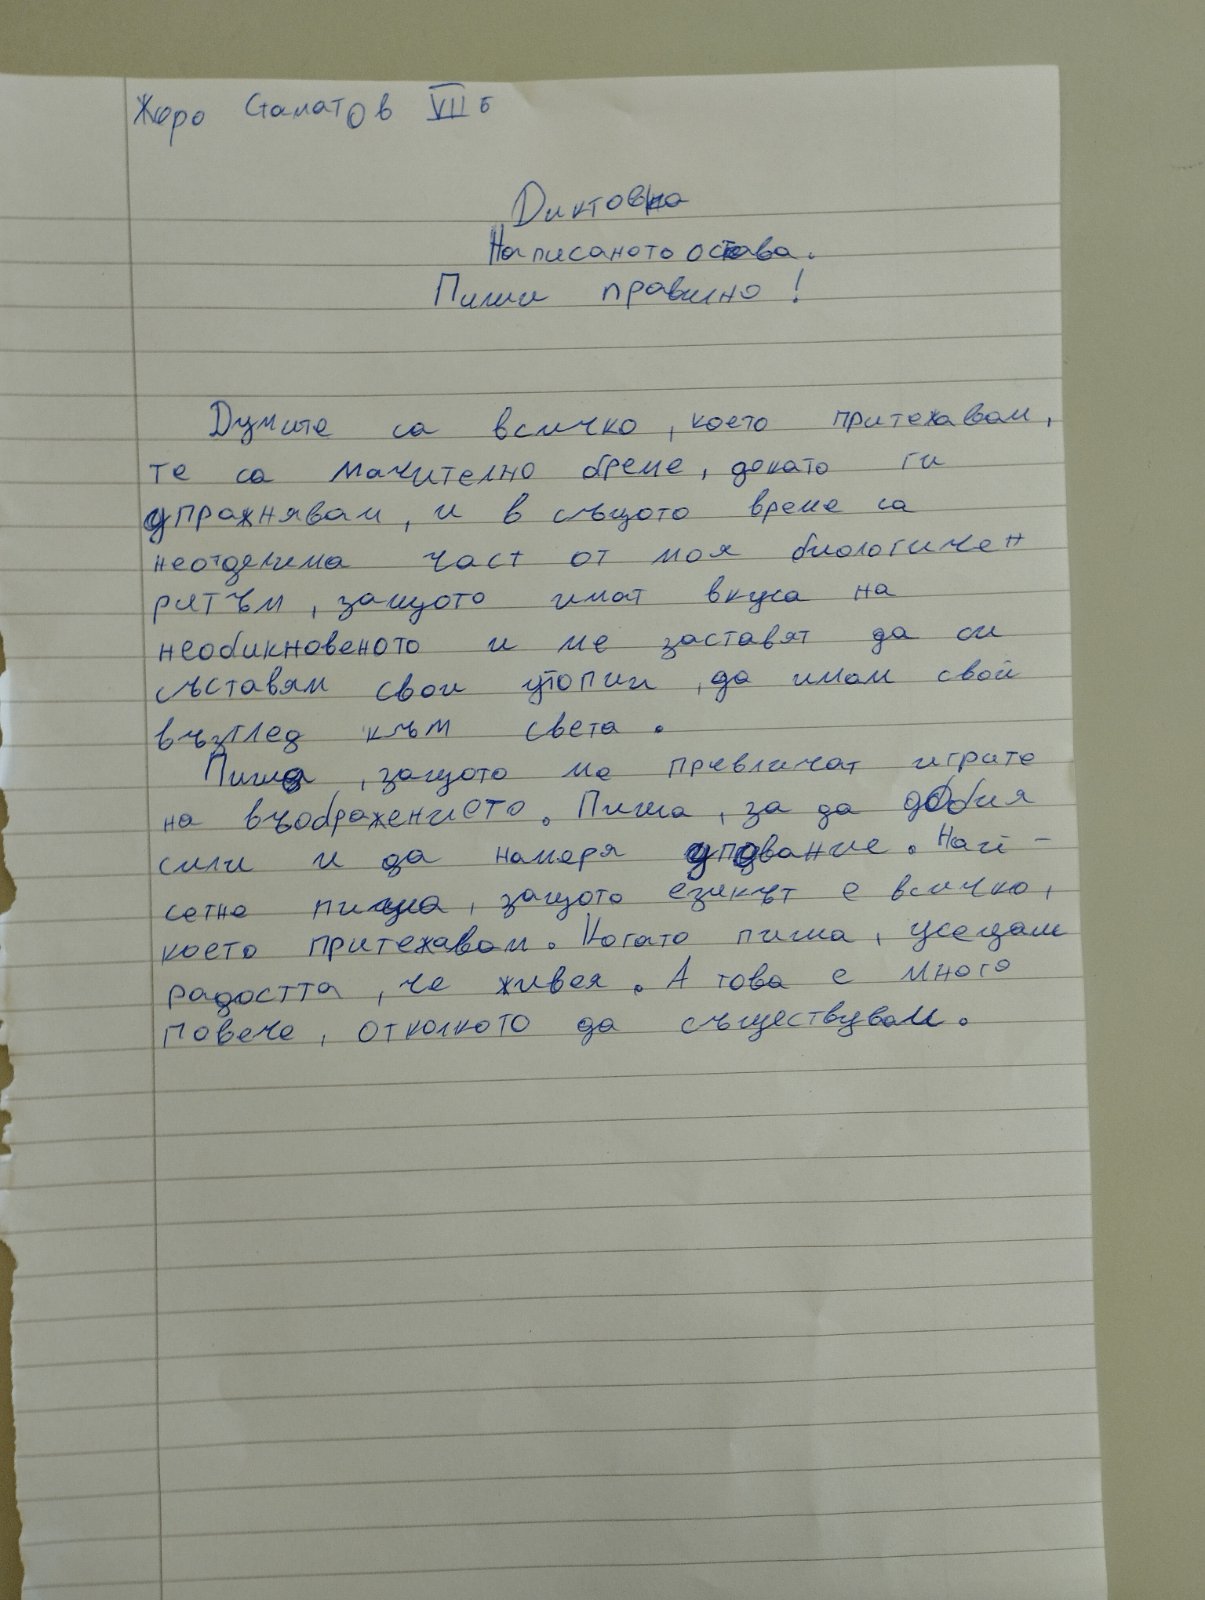 Жоро Стаматов VII б
Диктовка
Написаното остава.
Пиши правилно!
Думите са всичко, което притежавам,
те са мачително бреме, докато ги
упражнявам, и в същото време са
неотделима част от моя биологичен
ритъм, защото имат вкуса на
необикновеното и ме заставят да си
съставям свои утопии, да имам свой
възглед към света.
Пиша, защото ме превличат играте
на въображението. Пиша, за да добия
сили и да намеря упование. Най-
сетне пиша, защото езикът е всичко,
което притежавам. Когато пиша, усещам
радостта, че живея. А това е много
повече, отколкото да съществувам.